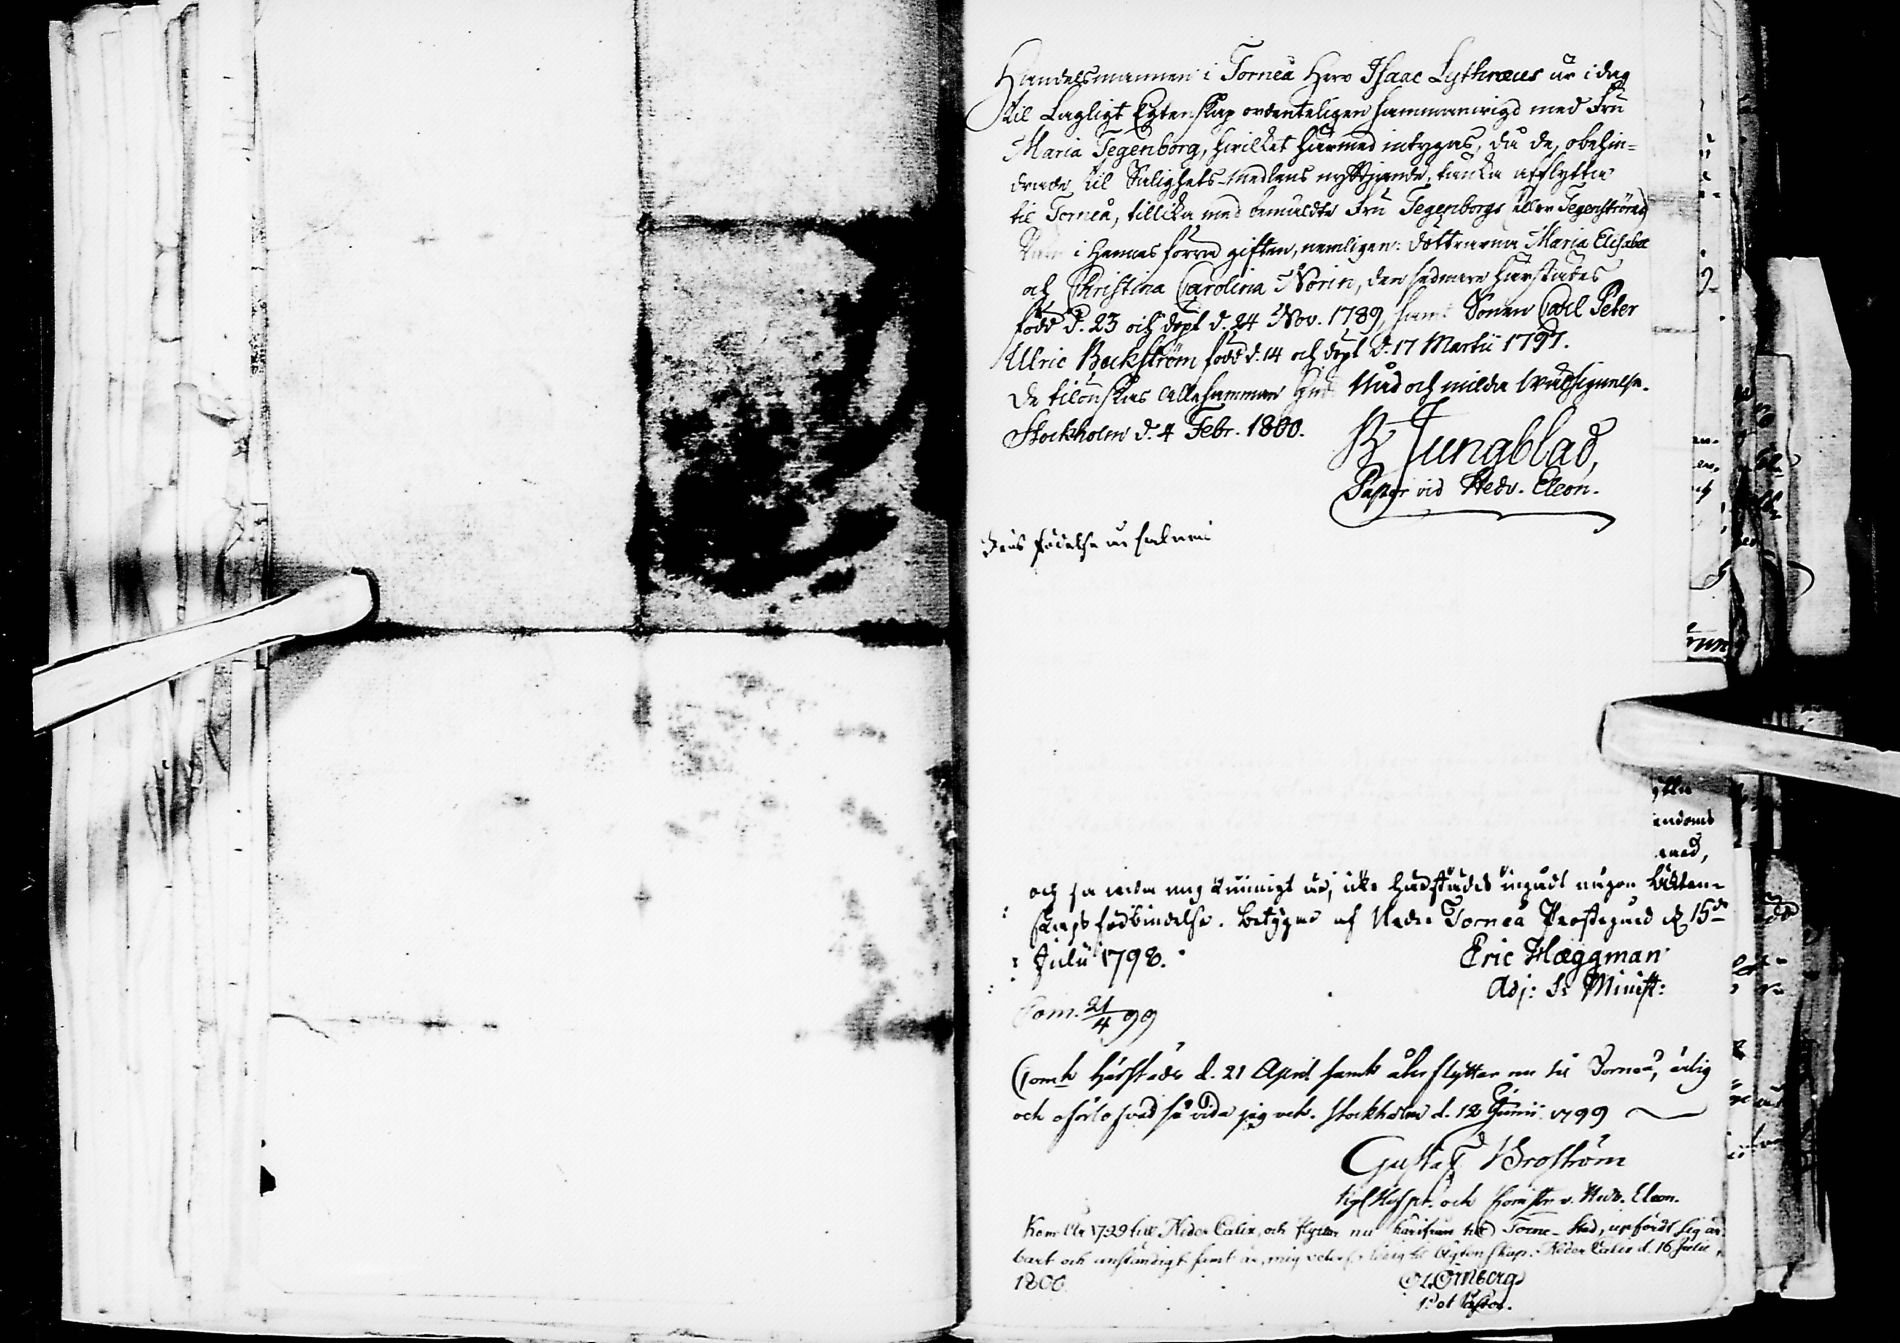 Handelsmannen i Torneå Herr Isaac Lythræus är i dag
til Lagligt Egtenskap ordenteligen sammanvigd med Fru
Maria Tegenborg, hvilket härmed intygas, då de, obehin-
drade til Salighets-medlens nyttjande, tänka afflytta
til Torneå, tillika med bemäldte Fru Tegenborgs (eller Tegenströms)
barn i hennes förra giften, nemligen: Döttrarna Maria Elisabet
och Christina Carolina Norin, den sednare härstädes
född d. 23 och döpt d. 24 Nov. 1789, samt Sonen Carl Peter
Ulric Beckström född d. 14 och döpt d. 17 Martii 1797.
De tilönskas allesamman Guds Nåd och milda Välsignelse.
Stockholm d. 4 Febr. 1800.
Jungblad,
Pastor vid Hedv. Eleon.
födelse
älla
endoms
med,
och så vida mig kunnigt är, icke hadstädes ingådt någon Äkten-
skaps förbindelse. Betygas af Neder Torneå Prostegård d. 15de
Julii 1798.
Eric Hæggman
Adj: Ministr:
Com. 21/4 99
Comt härstädes d. 21 April samt återflyttar nu til Torneå, ärlig
och oförlofvad så vida jag vet. Stockholm d. 12 Junii 1799
Gustaf Broström
och Comstr v. Hedv. Eleon.
Kom År 1799 till Neder Calix, och flyttar nu härifrån till Torne-Stad, upfördt sig är-
bart och anständigt samt är, mig veterl. ledig til Ägtenskap. Neder Calix d. 16 Julii
1800.
Örnberg
Past.